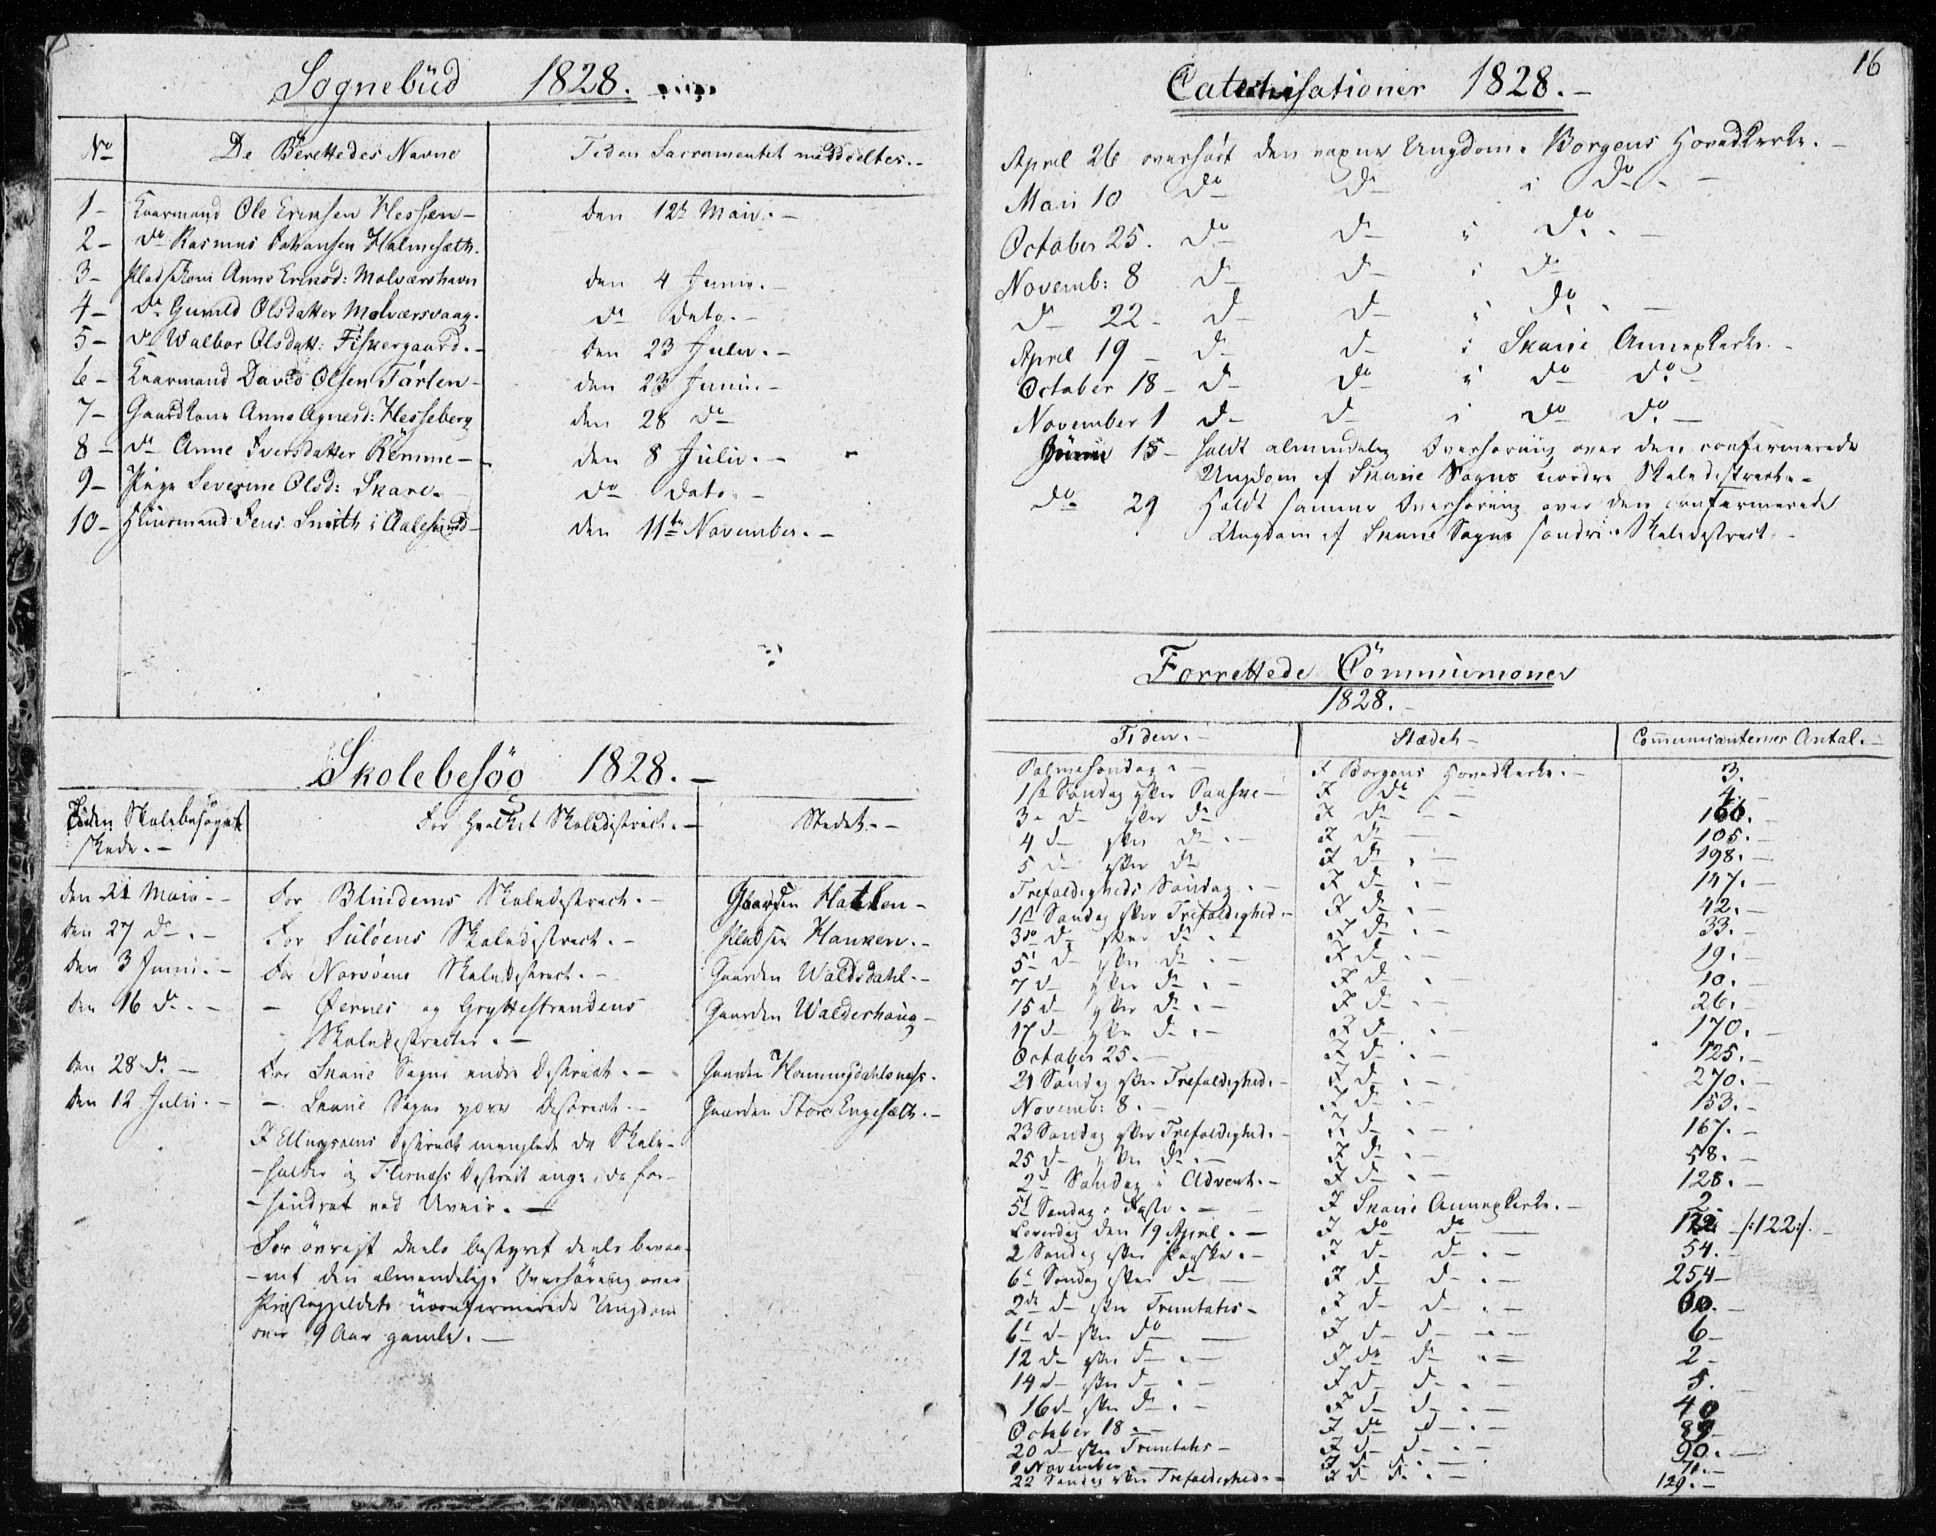 Sognebüd 1828.
No De Berettedes Navne Tiden Sacramentet meddeltes.
1 - Kaarmand Ole Ericksen Hessen - den 12te Maii. -
2 - do Rasmus Johansen Halmesæth.
3 - Pladskone Anne Ericksd: Molværshavn den 4 Junii. -
4 - do Gunild Olsdatter Molværsvaag. do dato. -
5 - do Walbor Olsdatt: Fiskergaard. - den 23 Julii. -
6 - Kaarmand David Olsen Tørlen - den 23 Junii. -
7 - Gaardkone Anne Agnesd: Hesseberg den 28 do
8 - do Anne Iversdatter Rømme - den 8 Julii. -
9 - Pige Severine Olsd: Skare. do dato. -
10 - Huusmand Jens Smith i Aalesund - den 11te November. -
Skolebesög 1828. -
Tiden Skolebesøget skede. - For hvilket Skoledistrict. - Stedet. -
den 21 Maii. - For Blindems Skoledistrict. - Gaarden Hatlen -
den 27 do. - For Suløens Skoledistrict. - Pladsen Hanken. -
den 3 Junii. - For Norvøens Skoledistrict. - Gaarden Waldsdahl. -
den 16 do. - - Øernes og Gryttestrandens Gaarden Walderhoüg -
Skoledistricter. -
den 28 do. - For Skarie Sogns indre District. - Gaarden Hammgdahlsnæss.
den 12 Julii. - - Skarie Sogns ydre District. - Gaarden Store Engesæth. -
I Ellingsøens District manglede de Skole-
-holder og Flernæss District ang: de for-
-hindret ved Uveir. -
For øvrigt deels bestyret deels bivaa-
-net den almindelige Overhøring over
Præstegjeldets üconfirmerede Ungdom
over 9 Aar gamle. -
16
Catechisationer 1828. -
April 26 overhørt den voxne Ungdom i Borgens Hovedkirke. -
Maii 10 do do i do. -
October 25. do do i do. -
Novemb: 8 do do i do
do 22 - do do i do. -
April 19 - do do i Skarie Annexkirke. -
October 18 - do do i do do. -
November 1 do do i do do. -
Junii 15 - holdt almindelig Overhøring over den confirmerede
Ungdom af Skarie Sogns nordre Skoledistricter -
do 29 Holdt samme Overhøring over den confirmerede
Ungdom af Skarie Sogns søndre Skoledistrict. -
Forrettede Communioner
1828. -
Tiden. - Stædet - Communicanternes Antal. -
Palmesøndag. - I Borgens Hovedkirke. - 3.
1ste Søndag efter Paaske - I do - 4. -
3die do efter do I do - 166. -
4 do efter do. - I do - 105. -
5 do efter do I do. - 198. -
Trefoldigheds Søndag. - I do. - 147. -
1ste Søndag efter Trefoldighed. - I do. - 42. -
3die do efter do. - I do. - 33. -
5te do efter do. - I do. - 19. -
7 do efter do. - I do. - 10. -
15 do efter do. - I do. - 26. -
17 do efter do. - I do. - 170. -
October 25. - I do. - 125. -
21 Søndag efter Trefoldighed. - I do. - 270. -
Novemb: 8. - I do. - 153. -
23 Søndag efter Trefoldighed. - I do. - 167. -
25 do efter do. - I do. - 58. -
2den Søndag i Advent. - I do. - 128. -
5te Søndag i Faste. - I Skarie Annexkirke. - 2.
Løverdag den 19 April. - I do do - 122 - /:122:/. -
2 Søndag efter Paaske. - I do do. - 54. -
6te Søndag efter do - I do do. - 254 -
2den do efter Trinitatis - I do do. - 60. -
6te do efter do - I do do. - 6 -
12 do efter do. - I do do. - 2 -
14 do efter do. - I do do. - 5. -
16 do efter do. - I do do. - 40
October 18. - I do do. - 89
20 do efter Trinitatis - I do do. - 90. -
1 November. - I do do. - 71. -
22 Søndag efter Trefoldighed. - I do do. - 129. -